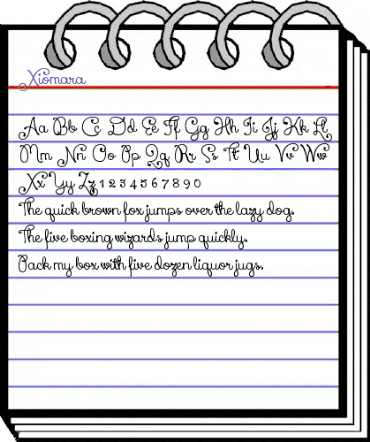 Xiomara
Aa Bb Cc Dd Ee Ff Gg Hh Ii Jj Kk Ll
Mm Nn Oo Pp Qq Rr Ss Tt Uu Vv Ww
Xx Yy Zz 1 2 3 4 5 6 7 8 9 0
The quick brown fox jumps over the lazy dog.
The five boxing wizards jump quickly.
Pack my box with five dozen liquor jugs.